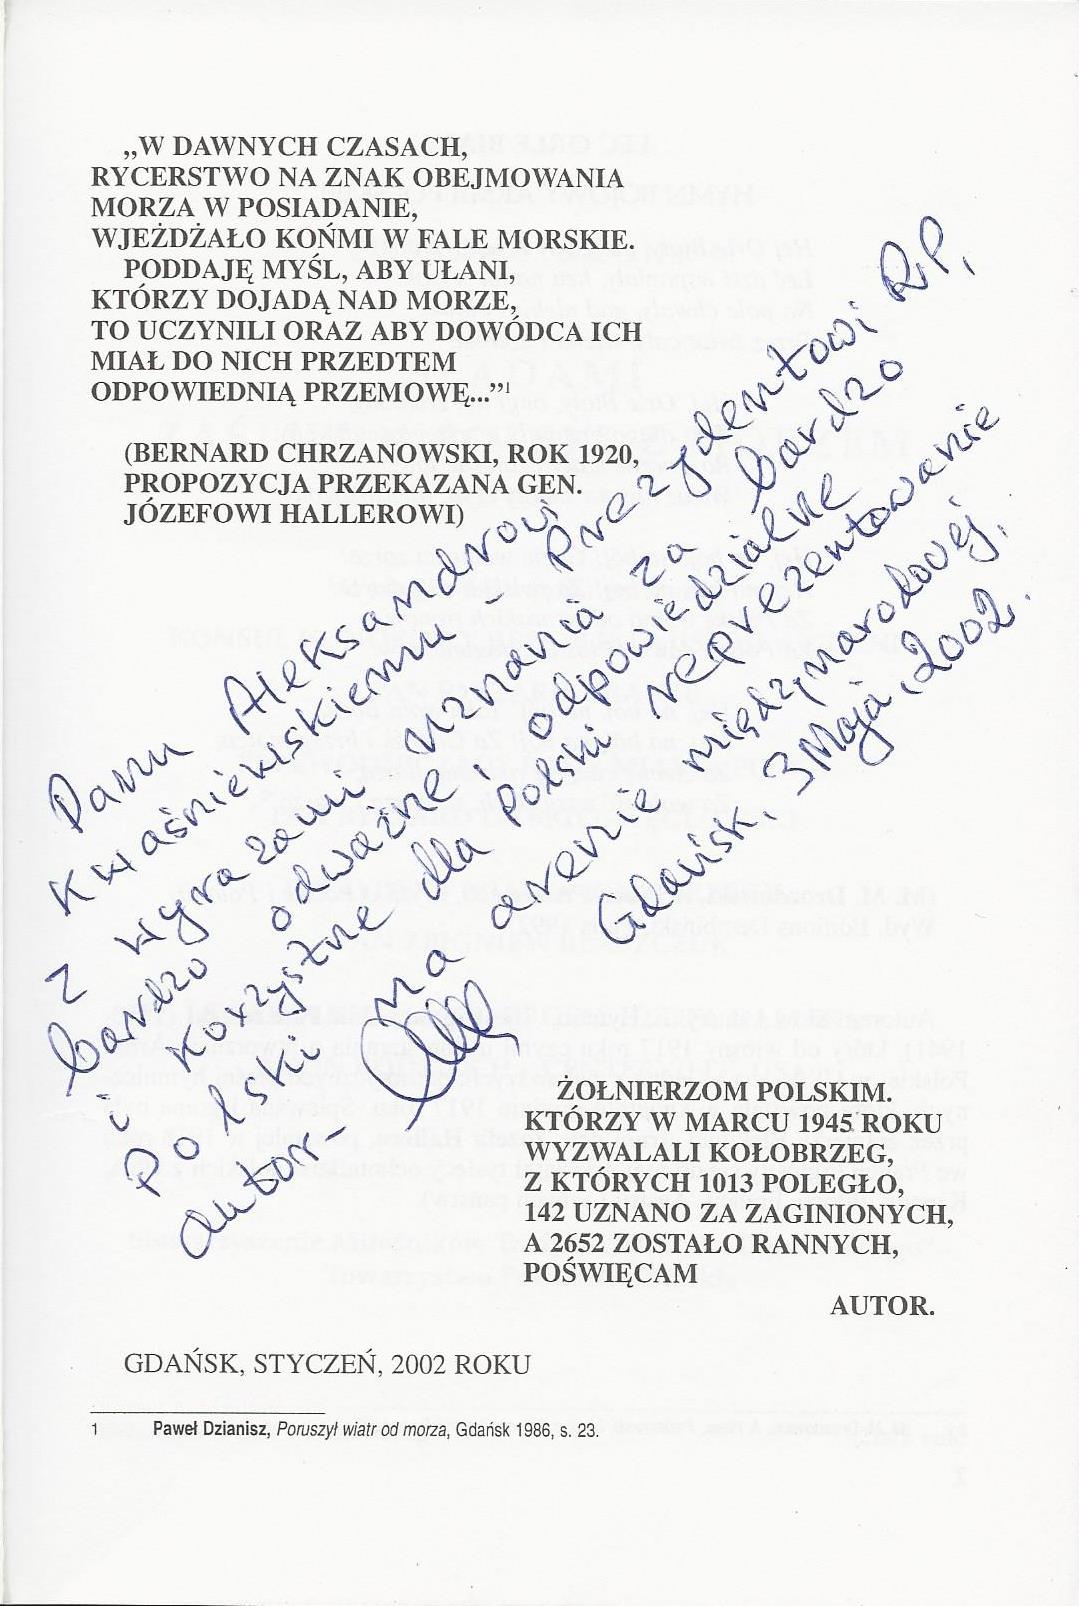 „W DAWNYCH CZASACH,
RYCERSTWO NA ZNAK OBEJMOWANIA
MORZA W POSIADANIE,
WJEŻDŻAŁO KOŃMI W FALE MORSKIE.
PODDAJĘ MYŚL, ABY UŁANI,
KTÓRZY DOJADĄ NAD MORZE,
TO UCZYNILI ORAZ ABY DOWÓDCA ICH
MIAŁ DO NICH PRZEDTEM
ODPOWIEDNIĄ PRZEMOWĘ...”1
(BERNARD CHRZANOWSKI, ROK 1920,
PROPOZYCJA PRZEKAZANA GEN.
JÓZEFOWI HALLEROWI)
Panu Aleksandrowi
Kwaśniewskiemu - Prezydentowi R.P.,
z wyrazami uznania za bardzo
bardzo odważne, odpowiedzialne
i korzystne dla Polski reprezentowanie
Polski na arenie międzynarodowej.
autor- Gdańsk, 3 Maja, 2002.
ŻOŁNIERZOM POLSKIM.
KTÓRZY W MARCU 1945 ROKU
WYZWALALI KOŁOBRZEG,
Z KTÓRYCH 1013 POLEGŁO,
142 UZNANO ZA ZAGINIONYCH,
A 2652 ZOSTAŁO RANNYCH,
POŚWIĘCAM
AUTOR.
GDAŃSK, STYCZEŃ, 2002 ROKU
1 Paweł Dzianisz, Poruszył wiatr od morza, Gdańsk 1986, s. 23.